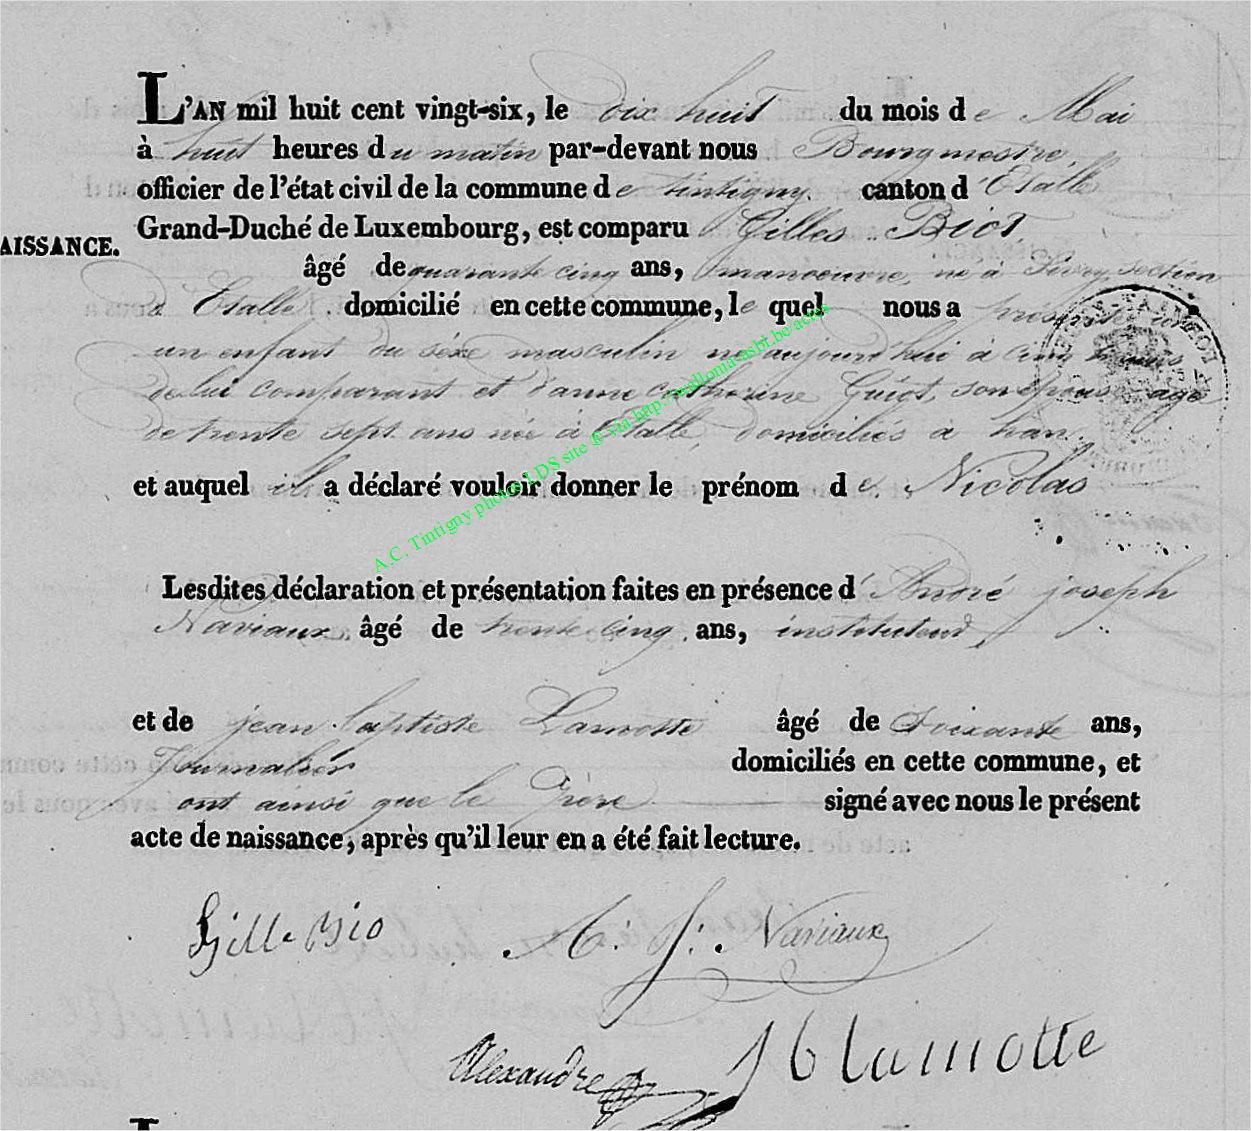 L'AN mil huit cent vingt-six, le dix huit du mois de Mai
à huit heures du matin par-devant nous Bourgmestre,
officier de l'état civil de la commune de tintigny. canton d'Etalle
Grand-Duché de Luxembourg, est comparu Gilles Biot
AISSANCE.
âgé de quarante cinq ans, manoeuvre, né à Sivry, section
d'Etalle. domicilié en cette commune, le quel nous a présenté
un enfant du séxe masculin né aujourd'hui à cinq heures
de lui comparant et d'anne catherine Guiot, son épouse agé
de trente sept ans née à Etalle, domiciliés a han.
et auquel il a déclaré vouloir donner le prénom de Nicolas
Lesdites déclaration et présentation faites en présence d'André joseph
Naviaux âgé de trente cinq ans, instituteur,
et de jean baptiste Lamotte âgé de Soixante ans,
Journalier domiciliés en cette commune, et
ont ainsi que le Père signé avec nous le présent
acte de naissance, après qu'il leur en a été fait lecture.
Gille Bio A. J. Naviaux
Alexandre JB lamotte
A.C. Tintigny photos LDS site & via http://wallonia-asbl.be/actes